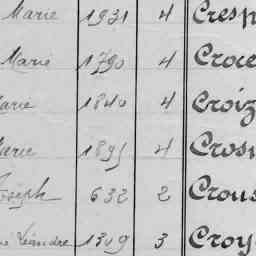 Marie 1931 4 Cresp
Marie 1790 4 Croce
Marie 1840 4 Croiz
Marie 1895 4 Cros
Joseph 632 2 Crous
Léandre 1309 3 Croy